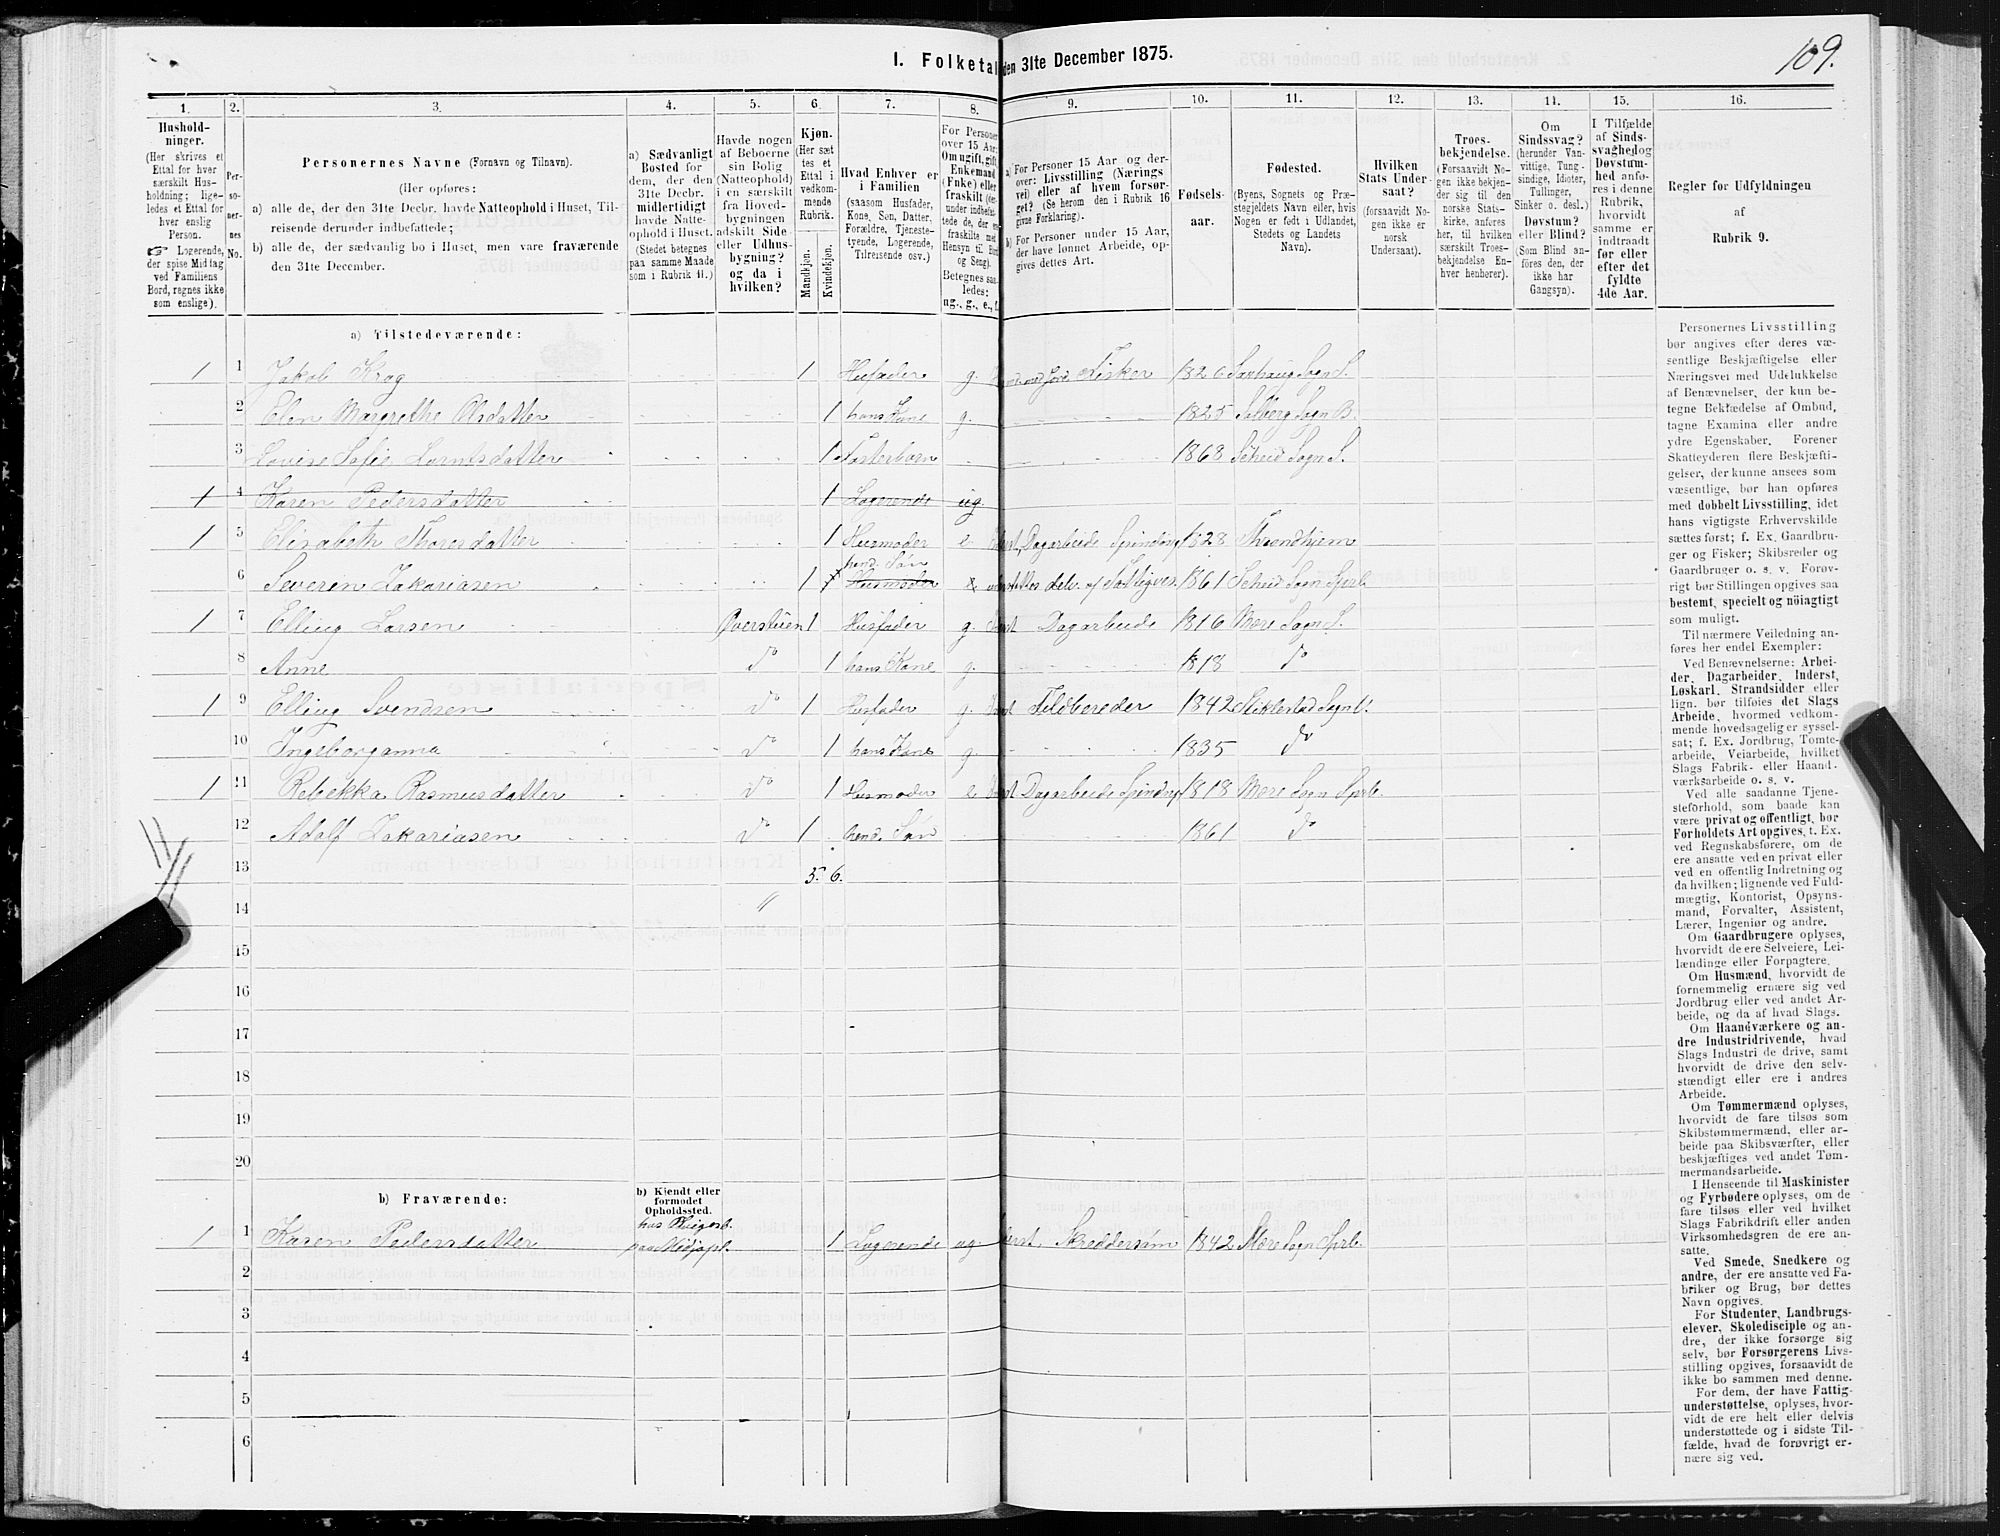 109.
I. Folketal den 31te December 1875.
1. 2. 3. 4. 5. 6. 7. 8. 9. 10. 11. 12. 13. 14. 15. 16.
Hushold-
ninger.
(Her skrives et
Ettal for hver
særskilt Hus-
holdning; lige-
ledes et Ettal for
hver enslig
Person.
☞ Logerende,
der spise Middag
ved Familiens
Bord, regnes ikke
som enslige).
Per-
so-
ner-
nes
No.
Personernes Navne (Fornavn og Tilnavn).
(Her opføres:
a) alle de, der den 31te Decbr. havde Natteophold i Huset, Til-
reisende derunder indbefattede;
b) alle de, der sædvanlig bo i Huset, men vare fraværende
den 31te December.
a) Sædvanligt
Bosted for
dem, der den
31te Decbr.
midlertidigt
havde Natte-
ophold i Huset.
(Stedet betegnes
paa samme Maade
som i Rubrik 11.)
Havde nogen
af Beboerne
sin Bolig
(Natteophold)
i en særskilt
fra Hoved-
bygningen
adskilt Side-
eller Udhus-
bygning?
og da i
hvilken?
Kjøn.
(Her sæt
tes et
Ettal i
vedkom-
mende
Rubrik.
Mandkjøn.
Kvindekjøn.
Hvad Enhver er
i Familien
(saasom Husfader,
Kone, Søn, Datter,
Forældre, Tjeneste-
tyende, Logerende,
Tilreisende osv.)
For Personer
over 15 Aar:
Om ugift, gift,
Enkemand
(Enke) eller
fraskilt
Betegnes saa-
ledes:
ug., g., e., f.
a) For Personer 15 Aar og der-
over: Livsstilling (Nærings
vei) eller af hvem forsør-
get? (Se herom den i Rubrik 16
givne Forklaring).
b) For Personer under 15 Aar,
der have lønnet Arbeide, op-
gives dettes Art.
Fødsels-
aar.
Fødested.
(Byens, Sognets og Præ-
stegjeldets Navn eller, hvis
Nogen er født i Udlandet,
Stedets og Landets
Navn).
Hvilken
Stats Under-
saat?
(forsaavidt No-
gen ikke er
norsk
Undersaat).
Troes-
bekjendelse.
(Forsaavidt No-
gen ikke bekjen-
der sig til den
norske Stats-
kirke, anføres
her, til hvilken
særskilt Troes-
bekjendelse En-
hver henhører).
Om
Sindssvag?
(herunder Van-
vittige, Tung-
sindige, Idioter,
Tullinger,
Sinker o. desl.)
Døvstum?
eller Blind?
(Som Blind an-
føres den, der
ikke har
Gangsyn).
I Tilfælde
af Sinds-
svaghed og
Døvstum-
hed anfø-
res i denne
Rubrik,
hvorvidt
samme er
indtraadt
før eller
efter det
fyldte
4de Aar.
Regler for Udfyldningen
af
Rubrik 9.
a) Tilstedeværende:
1 1 Jakob Krog 1 Husfader g. Fisker 1826
2 Elen Margrethe Olsdatter 1 hans Kone g. 1825 Salberg Sogn B.
3 Lovise Sofie 1 Fosterbarn 1863 Sogn S.
1 4 Karen Pedersdatter 1 Logerende ug.
1 5 Elisabeth Thoresdatter 1 Husmoder e Dagarbeide Spinding 1828 Throndhjem
hend. Søn
6 Severen Zakariasen 1 1 Husmoder 1861 Sogn Sprb.
1 7 Elling Larsen 1 Husfader g. Dagarbeide 1816 Mære Sogn S.
8 Anne do 1 hans Kone g. 1818 do
1 9 Elling Svendsen do 1 Husfader g. Feldbereder 1842 Stiklestad Sogn
10 Ingeborganna do 1 hans Kone g. 1835 do
1 11 Rebekka Rasmusdatter do 1 Husmoder e Dagarbeide Spinding 1818 Mære Sogn Sprb.
12 Adolf Zakariasen do 1 hend. Søn 1861 do
13 5. 6.
14 "
15
16
17
18
19
20
b) Fraværende:
b) Kjendt eller
formodet
Opholdssted.
1 1 Karen Pedersdatter 1 Logerende ug. 1842 Mære Sogn Sprb.
2
3
4
5
6
Personernes Livsstilling
bør angives efter deres væ-
sentlige Beskjæftigelse eller
Næringsvei med Udelukkelse
af Benævnelser, der kun be-
tegne Beklædelse af Ombud,
tagne Examina eller andre
ydre Egenskaber. Forener
Skatteyderen flere Beskjæfti-
gelser, der kunne ansees som
væsentlige, bør han opføres
med dobbelt Livsstilling, idet
hans vigtigste Erhvervskilde
sættes først; f. Ex. Gaardbru-
ger og Fisker; Skibsreder og
Gaardbruger o. s. v. Forøv-
rigt bør Stillingen opgives saa
bestemt, specielt og nøiagtigt
som muligt.
Til nærmere Veiledning an-
føres her endel Exempler:
Ved Benævnelserne: Arbei-
der, Dagarbeider, Inderst,
Løskarl, Strandsidder eller
lign. bør tilføies det Slags
Arbeide, hvormed vedkom-
mende hovedsagelig er syssel-
sat; f. Ex. Jordbrug, Tomte-
arbeide, Veiarbeide, hvilket
Slags Fabrik- eller Haand-
værksarbeide o. s. v.
Ved alle saadanne Tjene-
steforhold, som baade kan
være privat og offentligt, bør
Forholdets Art opgives, t. Ex.
ved Regnskabsførere, om de
ere ansatte ved en privat eller
ved en offentlig Indretning og
da hvilken; lignende ved Fuld-
mægtig, Kontorist, Opsyns-
mand, Forvalter, Assistent,
Lærer, Ingeniør og andre.
Om Gaardbrugere oplyses,
hvorvidt de ere Selveiere, Lei-
lændinge eller Forpagtere.
Om Husmænd, hvorvidt de
fornemmelig ernære sig ved
Jordbrug eller ved andet Ar-
beide, og da af hvad Slags.
Om Haandværkere og an-
dre Industridrivende, hvad
Slags Industri de drive, samt
hvorvidt de drive den selv-
stændigt eller ere i andres
Arbeide.
Om Tømmermænd oplyses,
hvorvidt de fare tilsøs som
Skibstømmermænd, eller ar-
beide paa Skibsværfter, eller
beskjæftiges ved andet Tøm-
mermandsarbeide.
I Henseende til Maskinister
og Fyrbødere oplyses, om de
fare tilsøs eller ved hvilket
Slags Fabrikdrift eller anden
Virksomhedsgren de ere an-
satte.
Ved Smede, Snedkere og
andre, der ere ansatte ved Fa-
briker og Brug, bør dettes
Navn opgives.
For Studenter, Landbrugs-
elever, Skoledisciple og an-
dre, der ikke forsørge sig
selv, bør Forsørgerens Livs-
stilling opgives, forsaavidt de
ikke bo sammen med denne.
For dem, der have Fattig-
understøttelse, oplyses, hvor-
vidt de ere helt eller delvis
understøttede og i sidste Til-
fælde, hvad de forøvrigt er-
nære sig ved.